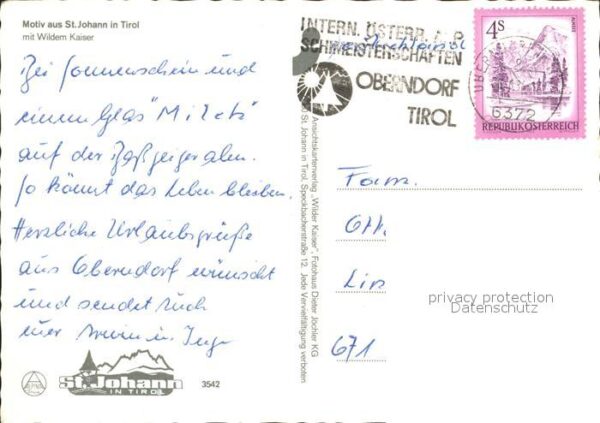 Motiv aus St.Johann in Tirol
mit Wildem Kaiser
Bei Sonnenschein und
einem Glas "Milch"
auf der Baßgeigeralm.
So könnt das Leben bleiben.
Herzliche Urlaubsgrüße
aus Oberndorf wünscht
und sendet Euch
St. Johann
IN TIROL
3542
Ansichtskartenverlag „Wilder Kaiser", Fotohaus Dieter Jöchler KG
St. Johann in Tirol, Speckbacherstraße 12. Jede Vervielfältigung verboten
INTERN. ÖSTERR.
SCHWEISTERSCHAFTEN
OBERNDORF
TIROL
6372
4S
REPUBLIK ÖSTERREICH
Fam.
Ott.
Lin
671
privacy protection
Datenschutz